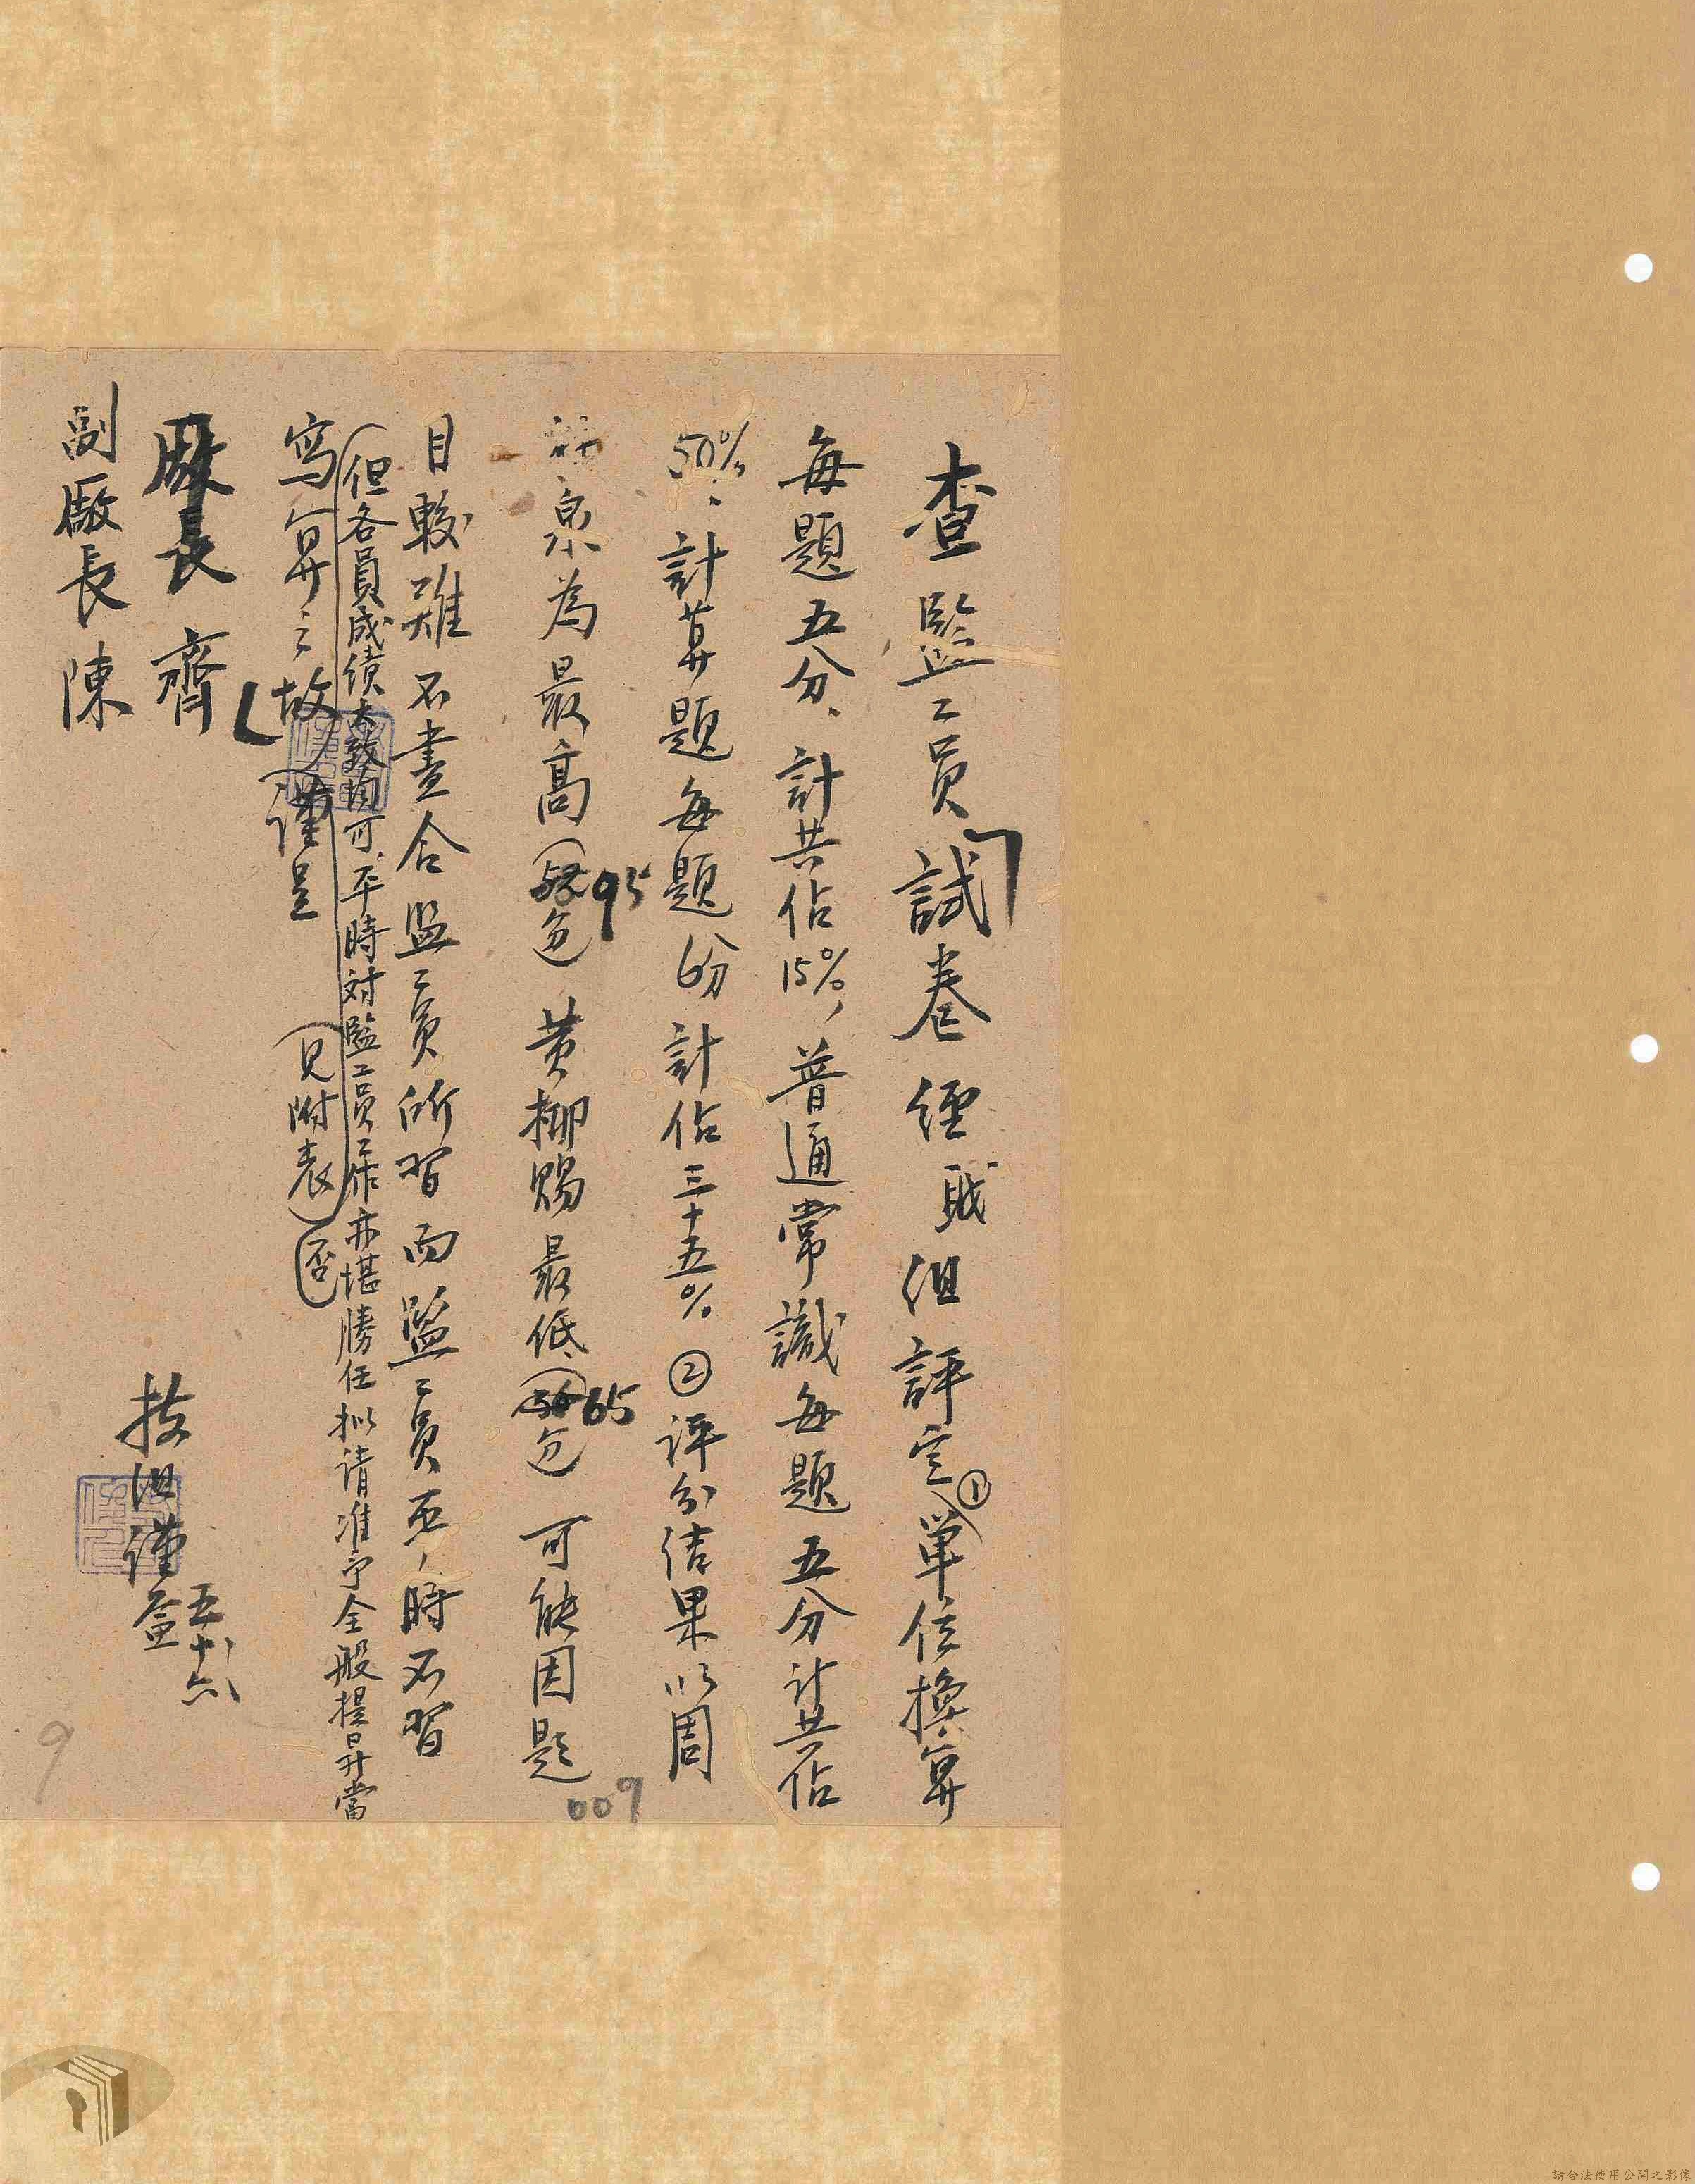 查監工員「試卷經職組評定①單位換算
每題五分、計共佔15%，普通常識每題五分計共佔
50%、計算題每題6分計佔三十五%②評分结果以周
泉為最高(95分)黄柳賜最低、(65分)可能因題
目較难不盡合監工員所習而監工員亚，時不習
(但各員成绩大致均可、平時对監工員工作亦堪勝任拟请准予全般提昇當
寫算之故」謹呈
(見附表)(否)
厰長齊
副厰長陳
技組謹簽
五十六
009
9
請合法使用公開之影像